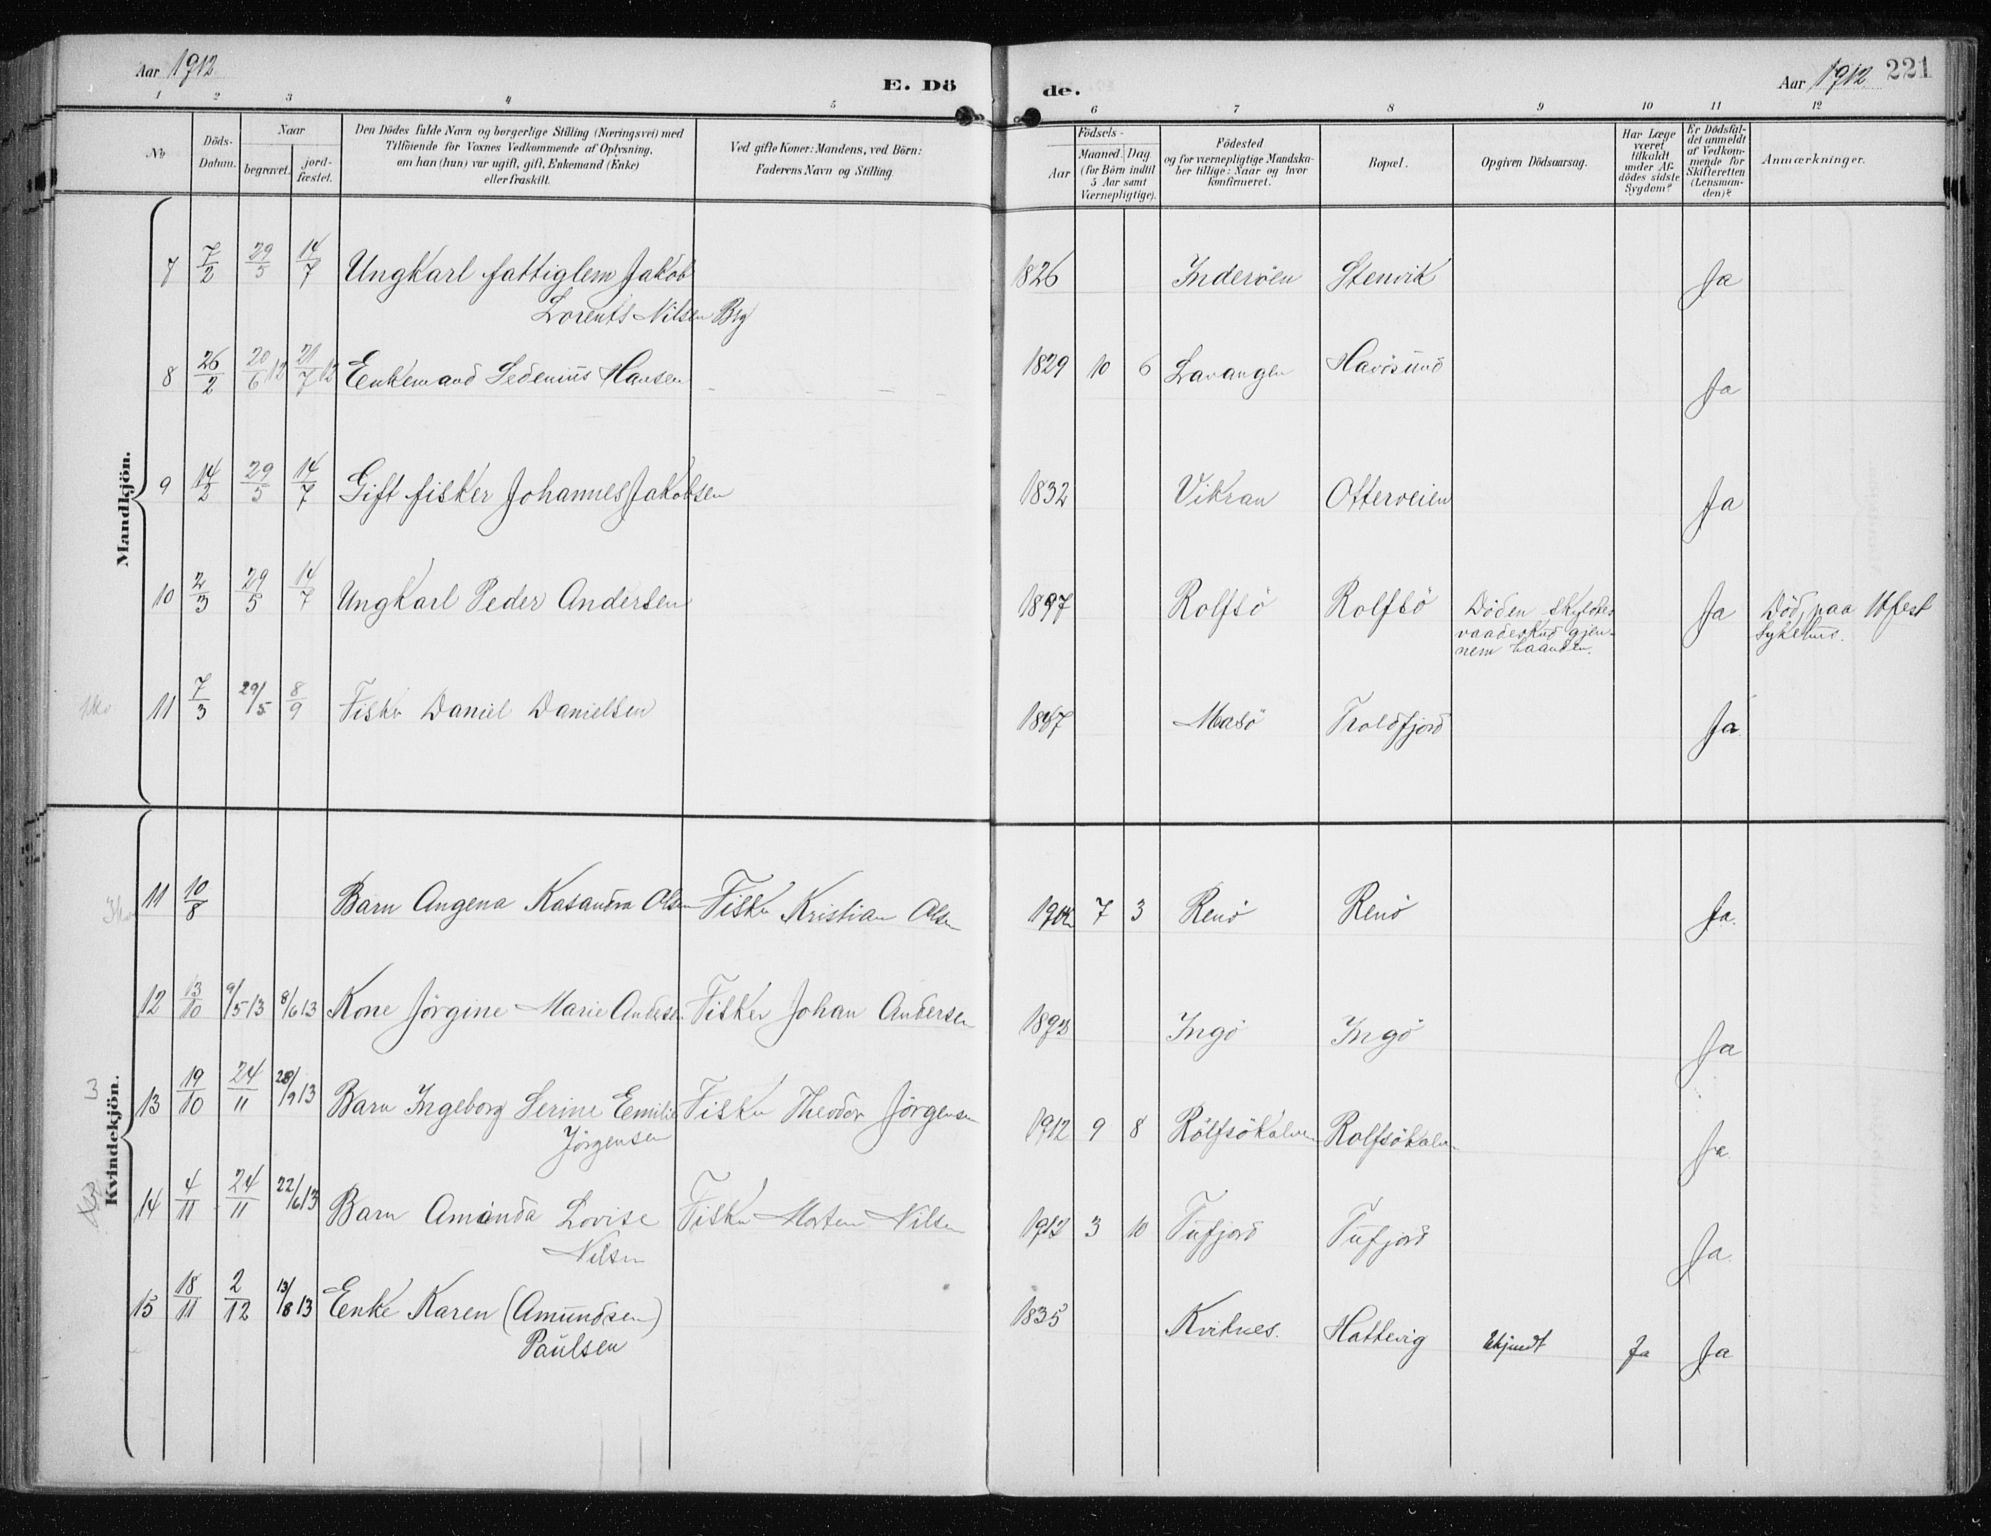 Aar 1912 E. Dö de. Aar 1912 221
1 2 3 4 5 6 7 8 9 10 11 12
No
Döds-Datum.
Naar
begravet.
jord-fæstet.
Den Dödes fulde Navn og borgerlige Stilling (Næringsvei) med
Tilföiende for Voxnes Vedkommende af Oplysning,
om han (hun) var ugift, gift, Enkemand (Enke)
eller fraskilt.
Ved gifte Koner: Mandens, ved Börn:
Faderens Navn og Stilling.
Födsels-
Aar
Maaned. Dag
(for Börn indtil
5 Aar samt
Værnepligtige).
Födested
og for værnepligtige Mandska-
ber tillige: Naar og hvor
konfirmeret.
Bopæl.
Opgiven Dödsaarsag.
Har Læge
været
tilkaldt
under Af-
dödes sidste
Sygdom?
Er Dödsfal-
det anmeldt
af Vedkom-
mende for
Skifteretten
(Lensman-
den)?
Anmærkninger.
Mandkjön.
7 7/2 29/5 14/7 Ungkarl fattiglem Jakob 1826 Inderöen Stenvik Ja
Lorents Nilsen Bsg
8 26/2 20/6 12 21/7 12 Enkemand Sedenius Hansen 1829 10 6 Lavangen Havösund Ja
9 14/2 29/5 14/7 Gift fisker Johannes Jakobsen 1832 Vikran Otterveien Ja
10 2/3 29/5 14/7 Ungkarl Peder Andersen 1897 Rolfsö Rolfsö Döden skyldes Ja Död paa
vaadeskud gjen- Sykehus.
nem haanden.
11 7/3 29/5 8/9 Fisker Daniel Danielsen Masö Troldfjord Ja
Kvindekjön.
11 10/8 Barn Angena Kasandra Olsen Fisker Kristian Olsen 7 3 Renö Renö Ja
12 13/10 9/5 13 8/6 13 Kone Jörgine Marie Andersen Fisker Johan Andersen Ingö Ingö Ja
3
13 19/10 24/11 28/9 13 Barn Ingeborg Serine Emilie Fisker Theodor Jörgensen 1912 9 8 Rolfsökalven Rolfsökalven Ja
Jörgensen
14 4/11 24/11 22/6 13 Barn Amanda Lovise Fisker Morten Nilsen 1912 3 10 Tufjord Tufjord Ja
Nilsen
15 18/11 2/12 13/8 13 Enke Karen (Amundsen) 1835 Kvitnes. Hattevig Ukjendt Ja Ja
Paulsen